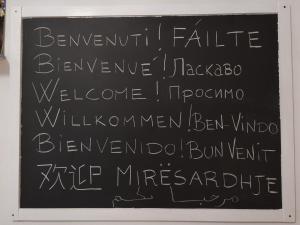 BENVENUTI! FÁILTE
BIENVENUE! Ласкаво
WELCOME! Просимо
WILLKOMMEN! BEN-VINDO
BIENVENIDO! BUN VENIT
欢迎 MIRËSARDHJE
مرحبا بكم